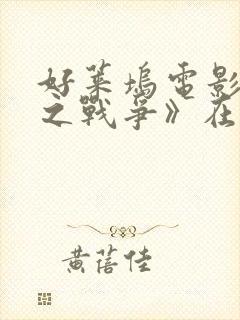 好萊塢電影
之戰爭》在
黃蓓佳